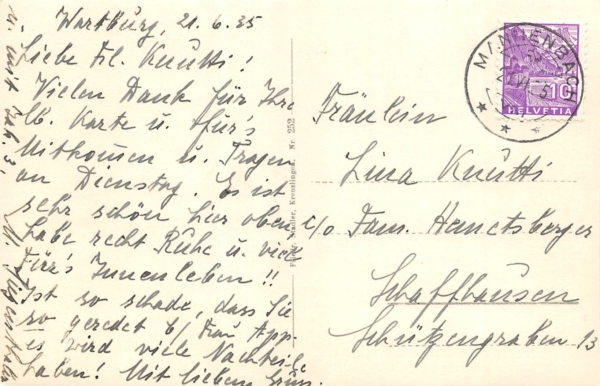 Wartburg, 21.6.35
Liebe Frl. Knutti!
Vielen Dank für Ihre
lb. Karte u. für's
Mitkommen u. Tragen
am Dienstag. Es ist
sehr schön hier oben
habe recht Ruhe u. viel
Für's Innenleben!!
Ist so schade, dass Sie
so geredet b/ Frau App-
es wird viele Nachteile
haben! Mit lieben Grüss.
Kreuzlingen. Nr. 252
MANNENBACH
10
HELVETIA
Fräulein
Lina Knutti
c/o Fam. Henetsberger
Schaffhausen
Schützengraben 13